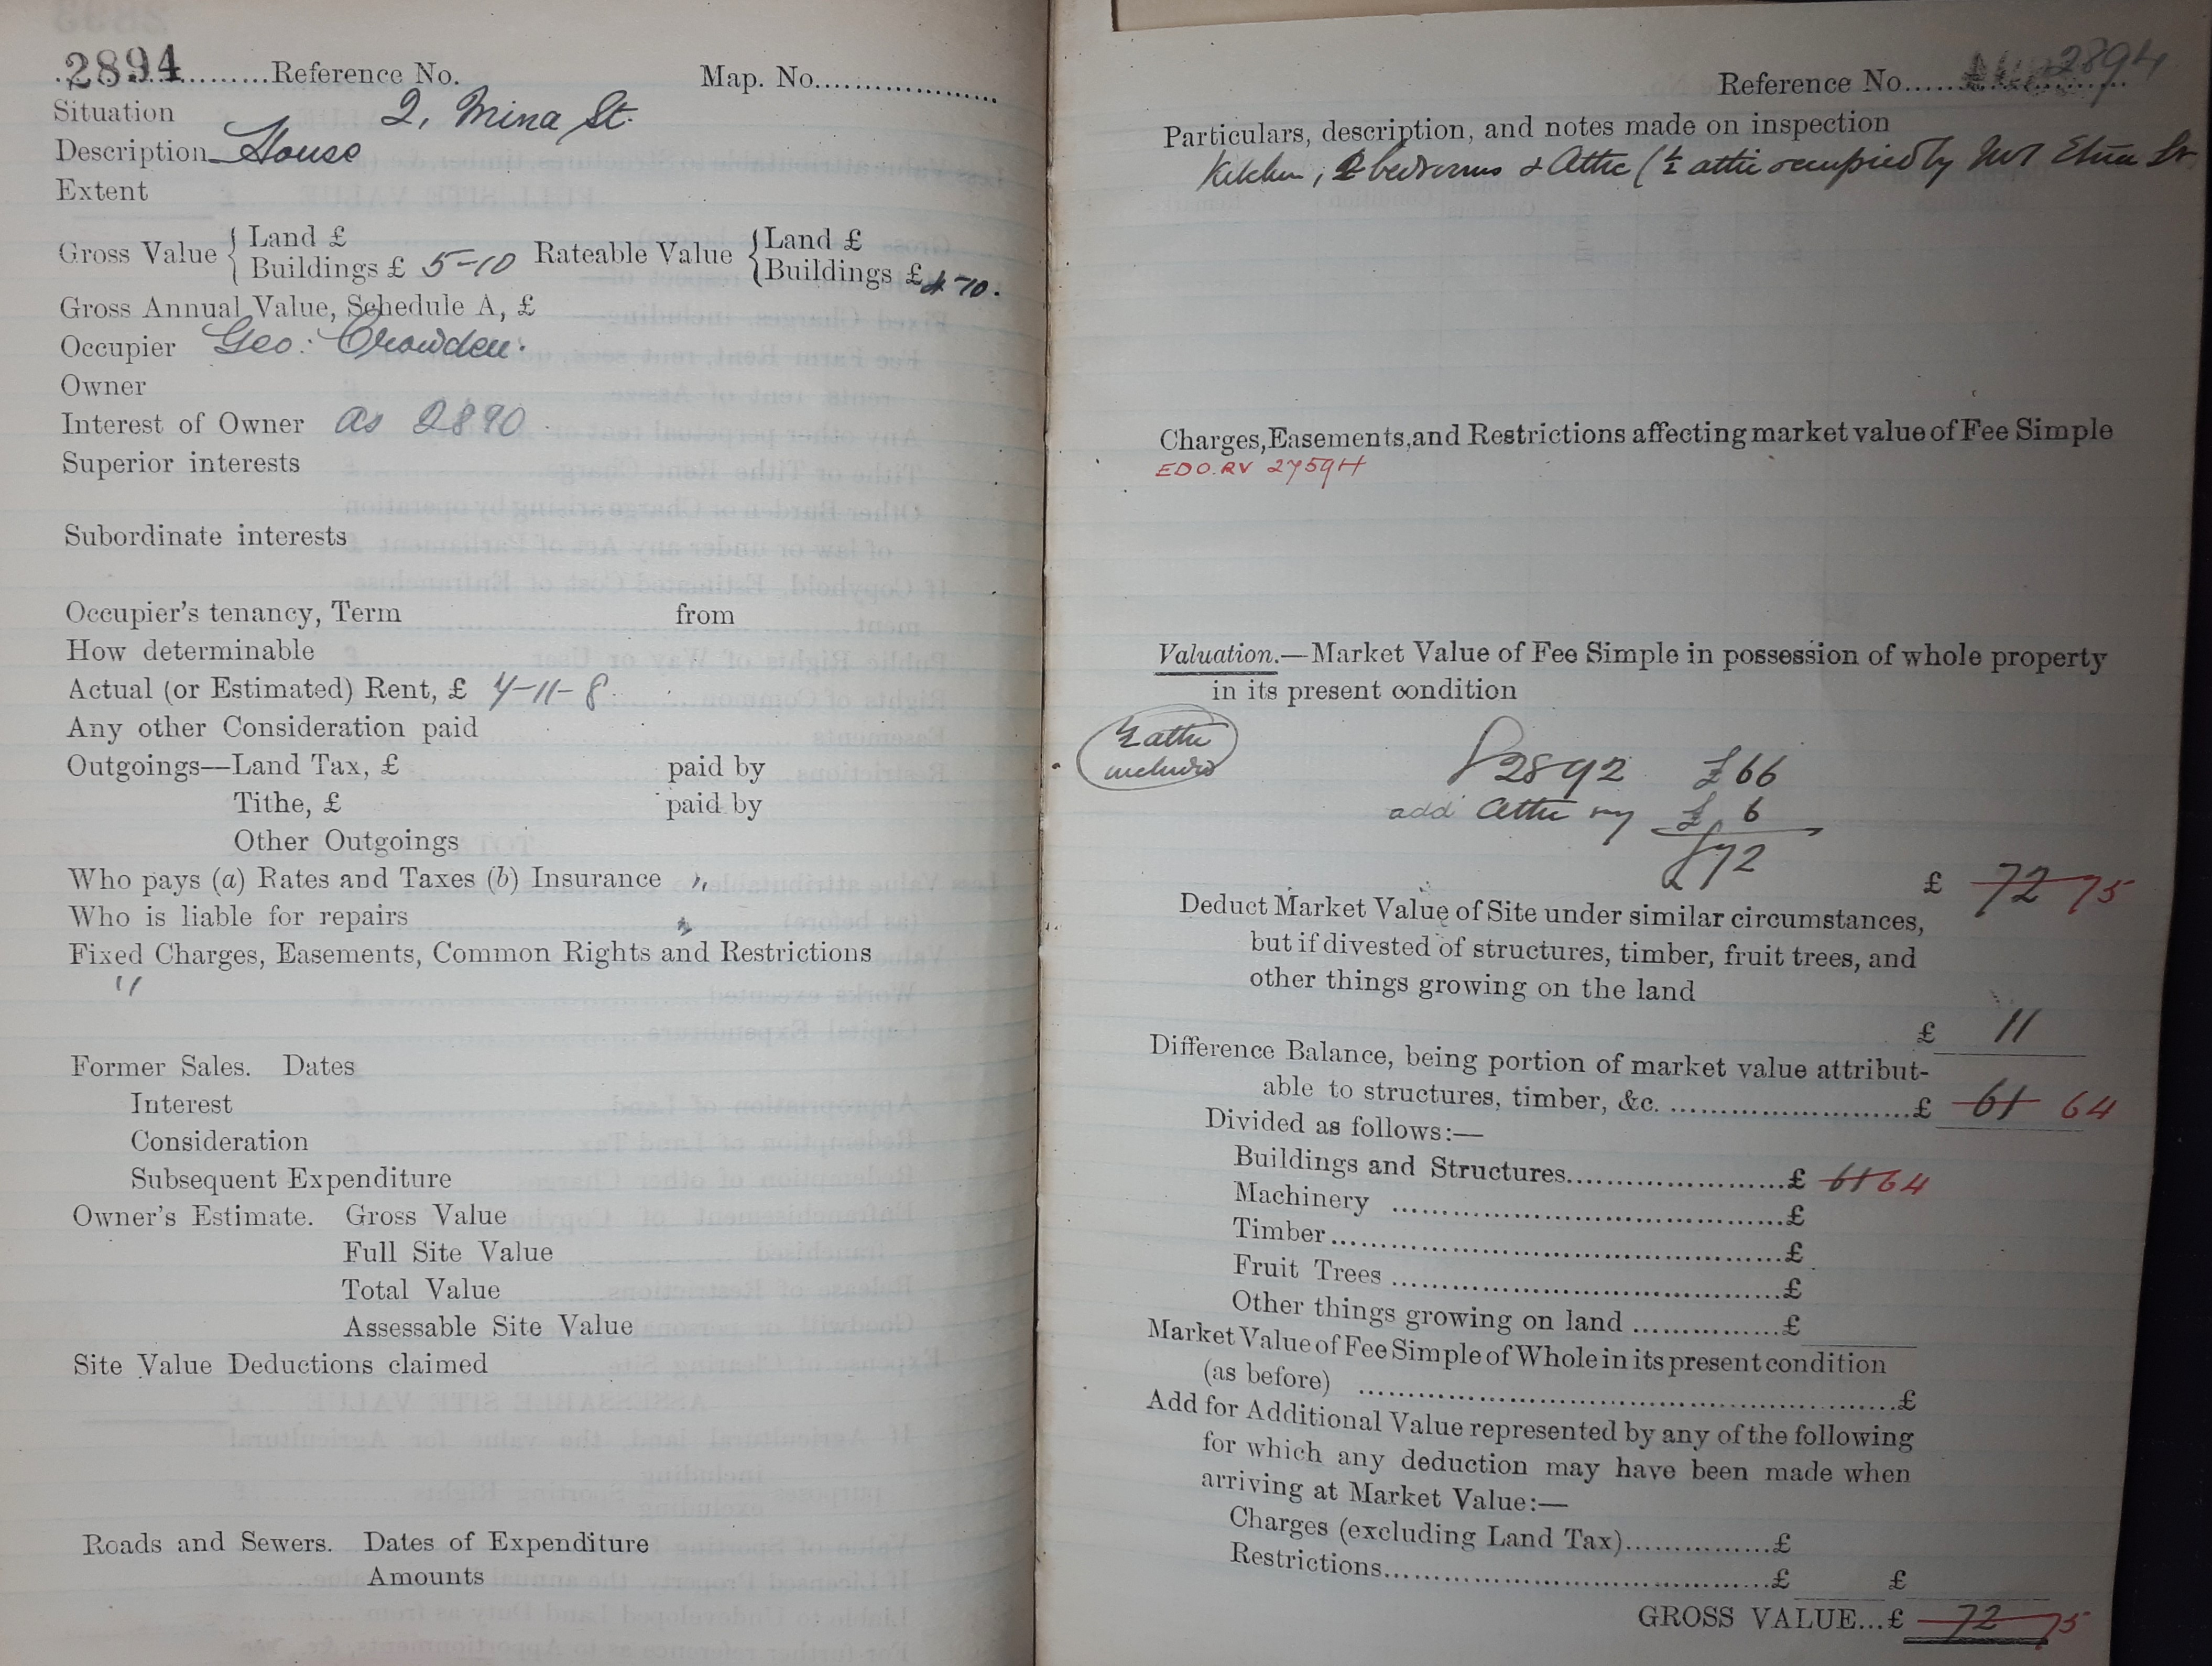 2894 Reference No. Map. No.
Situation 2, Mina St.
Description House
Extent
Gross Value { Land £ Rateable Value { Land £
Buildings £ 5-10 Buildings £ 4-10.
Gross Annual Value, Schedule A, £
Occupier Geo: Crowden.
Owner
Interest of Owner as 2890
Superior interests
Subordinate interests
Occupier's tenancy, Term from
How determinable
Actual (or Estimated) Rent, £ 4-11-8.
Any other Consideration paid
Outgoings—Land Tax, £ paid by
Tithe, £ paid by
Other Outgoings
Who pays (a) Rates and Taxes (b) Insurance "
Who is liable for repairs
Fixed Charges, Easements, Common Rights and Restrictions
"
Former Sales. Dates
Interest
Consideration
Subsequent Expenditure
Owner's Estimate. Gross Value
Full Site Value
Total Value
Assessable Site Value
Site Value Deductions claimed
Roads and Sewers. Dates of Expenditure
Amounts
Reference No. 2894
Particulars, description, and notes made on inspection
Kitchen, 2 bedrooms & Attic (½ attic occupied by St
Charges, Easements, and Restrictions affecting market value of Fee Simple
EDO. RV 2759H
Valuation.—Market Value of Fee Simple in possession of whole property
in its present condition
½ attic
included
2892 £66
add Attic £ 6
£72
£ 72 75
Deduct Market Value of Site under similar circumstances,
but if divested of structures, timber, fruit trees, and
other things growing on the land
£ 11
Difference Balance, being portion of market value attribut-
able to structures, timber, &c. £ 61 64
Divided as follows:—
Buildings and Structures £ 61 64
Machinery £
Timber £
Fruit Trees £
Other things growing on land £
Market Value of Fee Simple of Whole in its present condition
(as before) £
Add for Additional Value represented by any of the following
for which any deduction may have been made when
arriving at Market Value:—
Charges (excluding Land Tax) £
Restrictions £ £
GROSS VALUE...£ 72 75